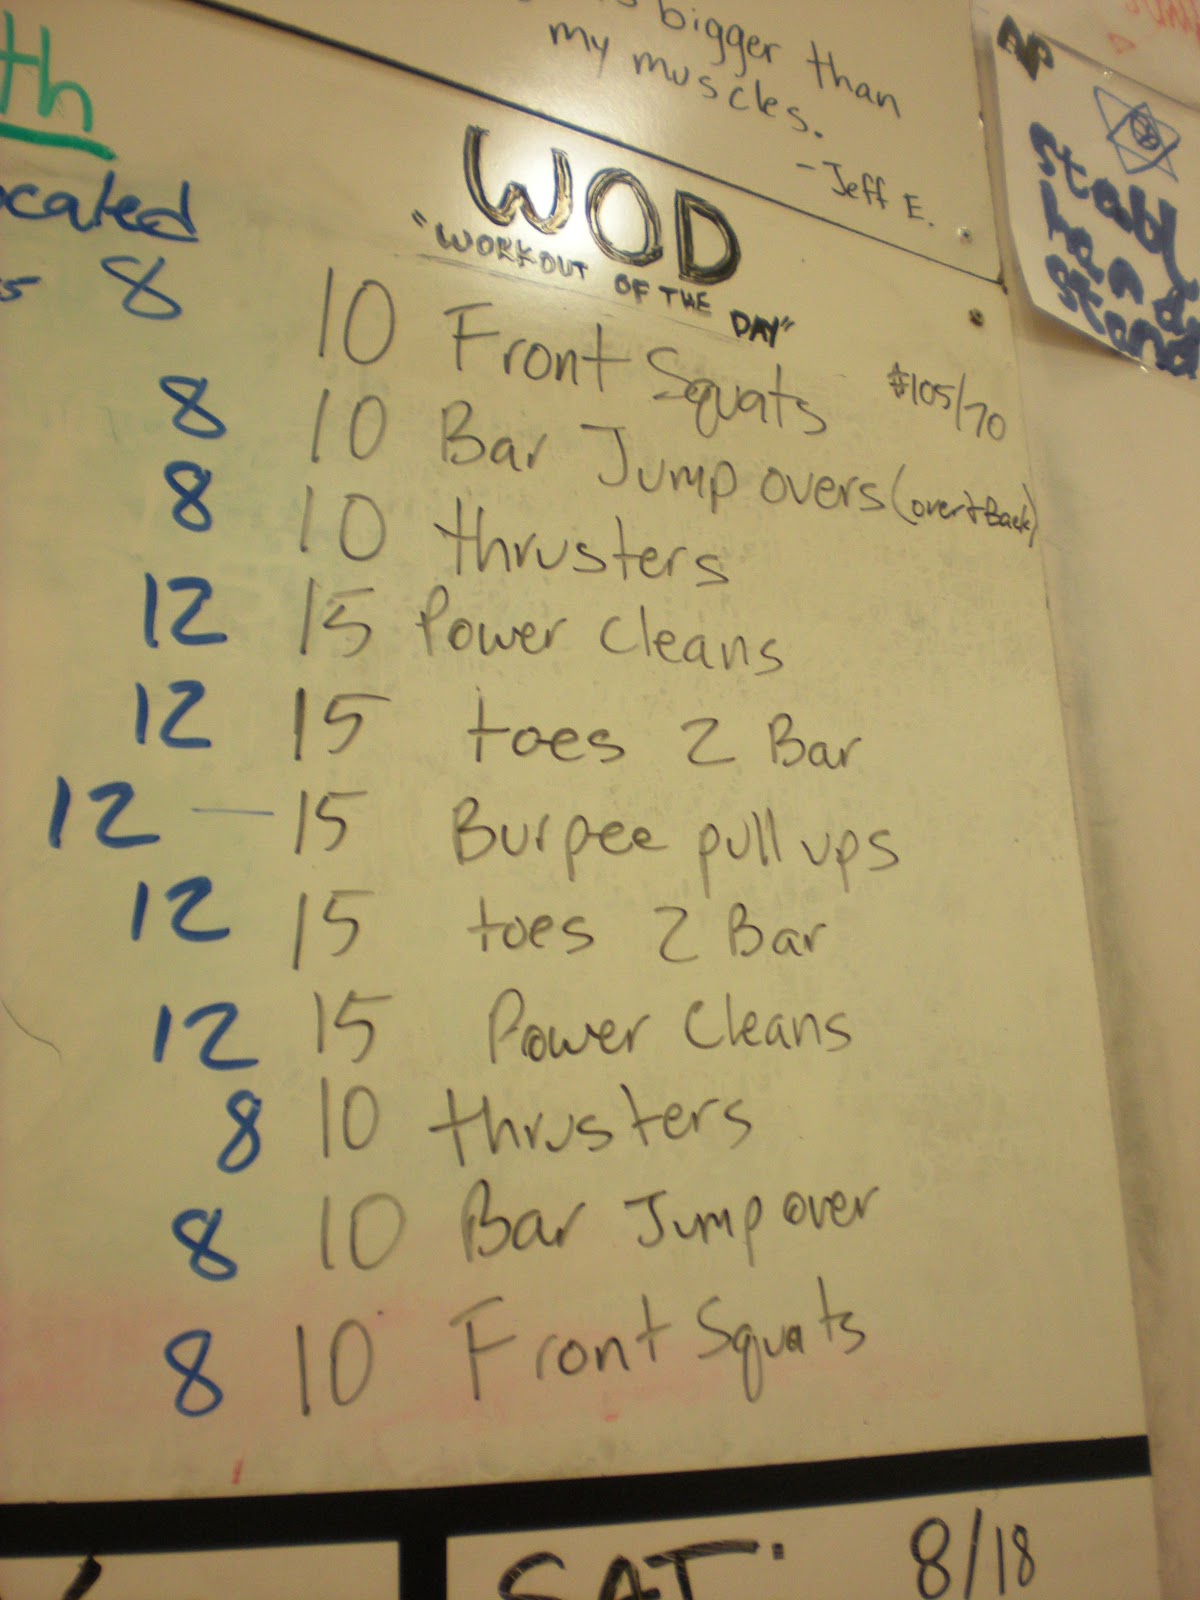 bigger than
my muscles.
- Jeff E.
th
ocated
WOD
"WORKOUT OF THE DAY"
8 10 Front Squats #105/70
8 10 Bar Jump overs (over+Back)
8 10 thrusters
12 15 Power Cleans
12 15 toes 2 Bar
12 — 15 Burpee pull ups
12 15 toes 2 Bar
12 15 Power Cleans
8 10 thrusters
8 10 Bar Jump over
8 10 Front Squats
SAT: 8/18
AP
Stabl
han d
Stand